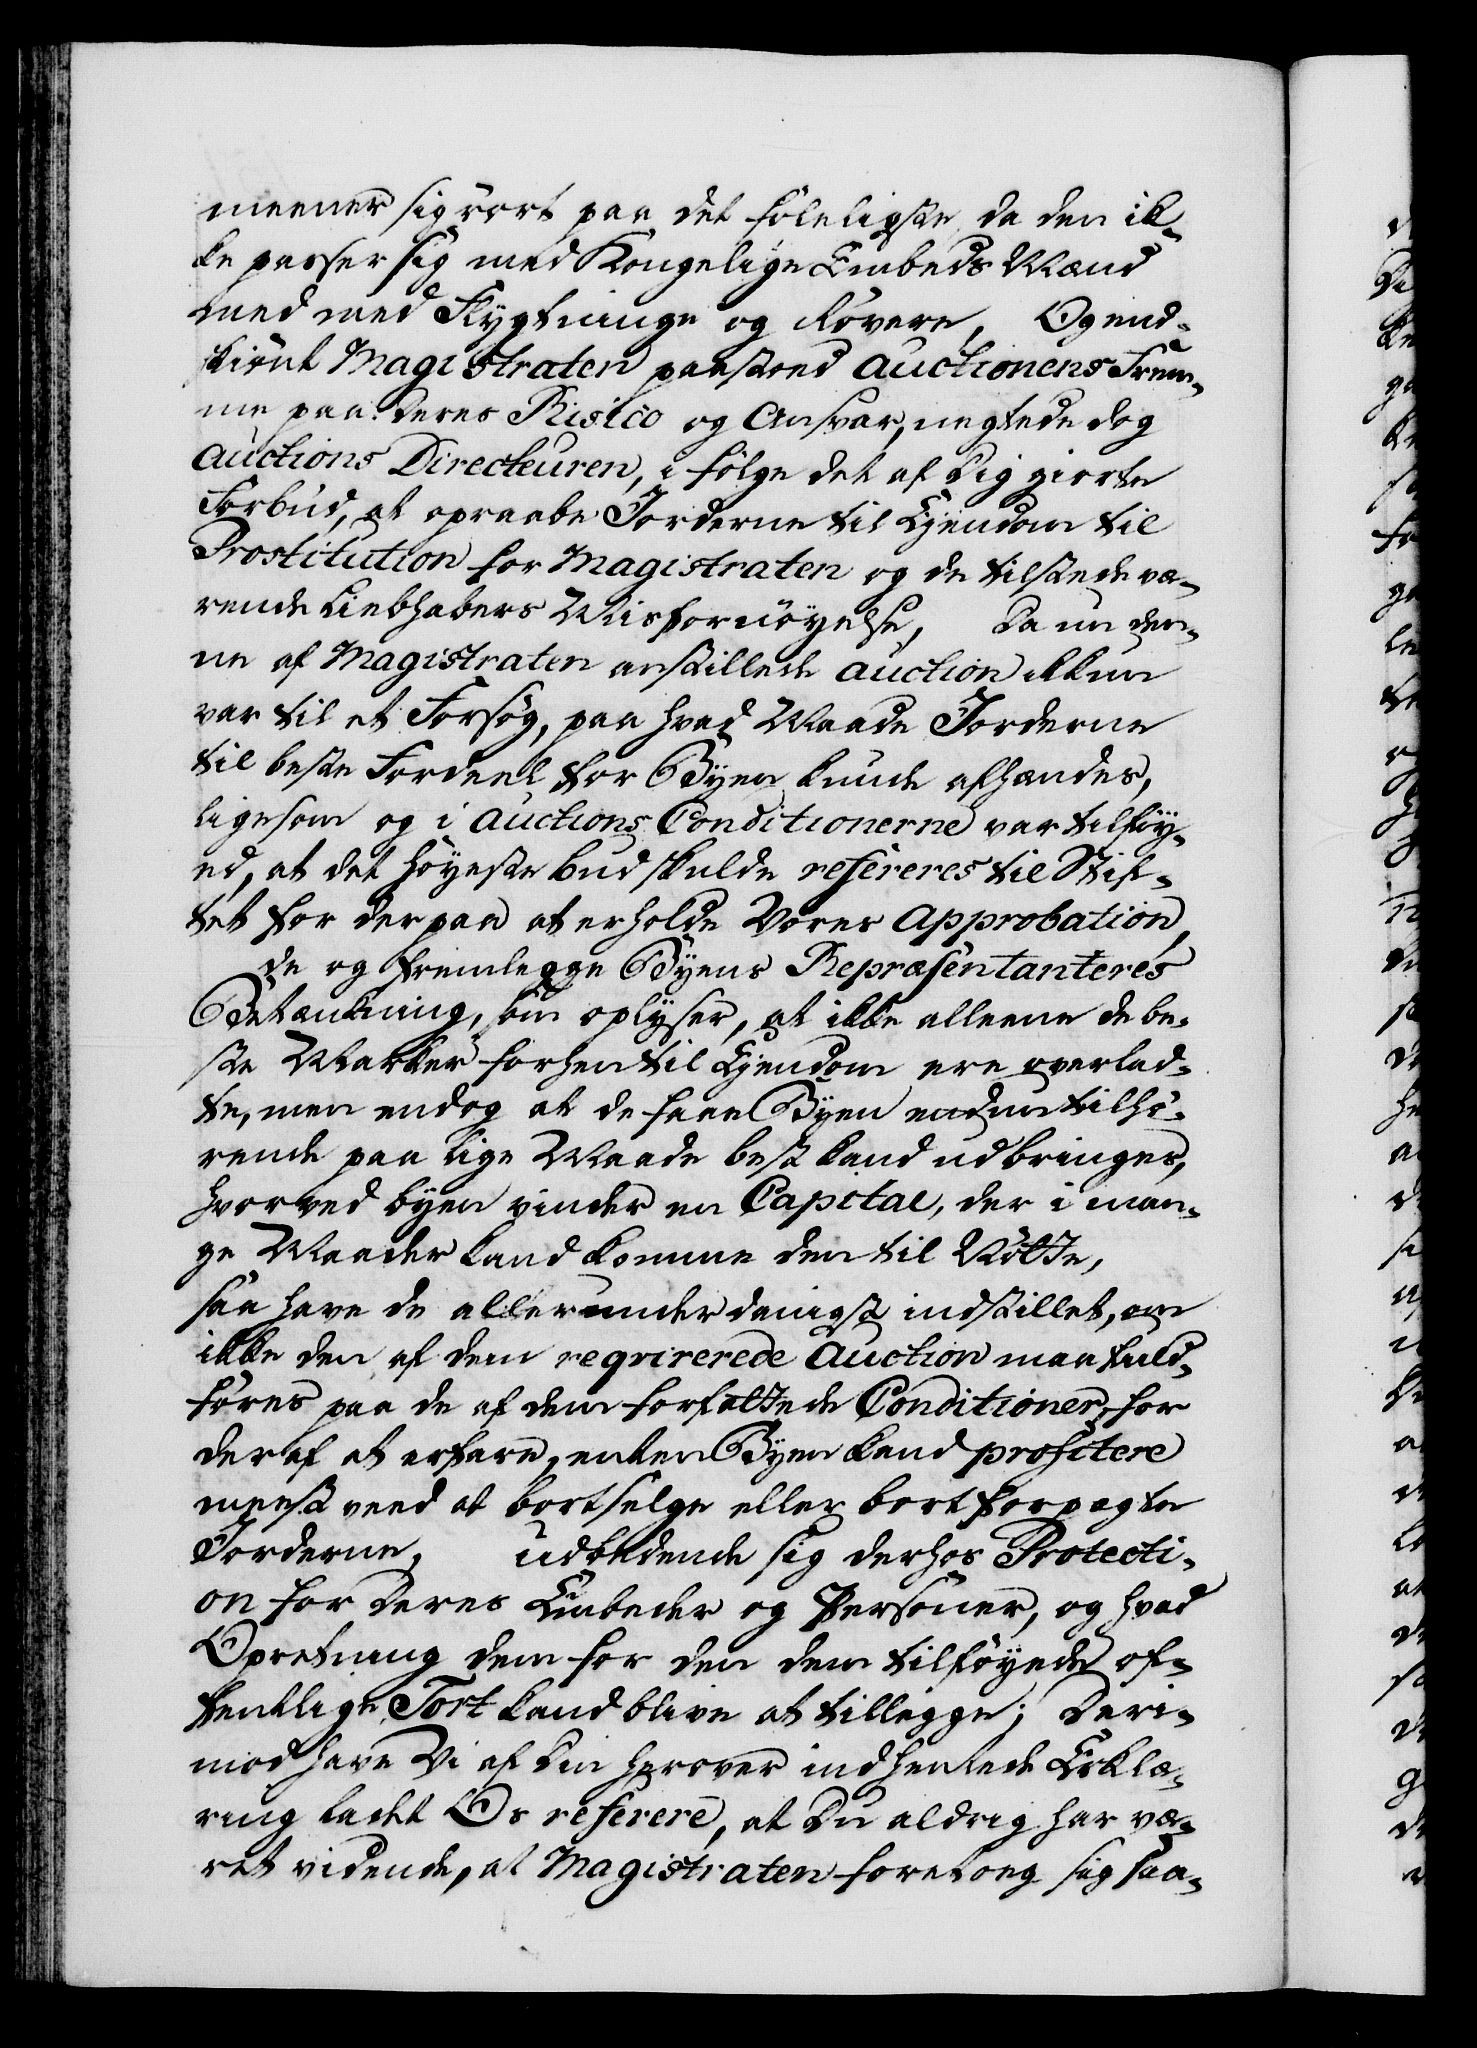 meener sig rørt paa det føleligste, da den ik-
ke passer sig med Kongelige Embeds Mænd
med med Flygtninge og Røvere, Ogend-
skiønt Magistraten paastoed Auctionens Frem-
me paa deres Risico og Ansvar, negtede dog
Auctions Directeuren, i følge det af Dig giorte
Forbud, at opraabe Jorderne til Ejendom til
Prostitution for Magistraten og de tilstedevæ-
rende Liebhabers Misfornøyelse, Da nu den-
ne af Magistraten anstillede Auction ikkun
var til et Forsøg, paa hvad Maade Jorderne
til beste Fordeel for Byen kunde afhændes,
ligesom og i Auctions Conditionerne var tilføy-
ed, at det høyeste bud skulde refereres til Stif-
tet for derpaa at erholde Vores Approbation,
de og fremlegge Byens Repræsentanteres
Betænkning, som oplyser, at ikke alleene de be-
ste Marker forhen til Ejendom ere overlad-
te, men endog at de faae Byen endnu tilhø-
rende paa lige Maade best kand udbringes,
hvorved byen vinder en Capital, der i man-
ge Maader kand komme den til Nøtte,
saa have de allerunderdanigst indstillet, om
ikke den af dem reqvirerede Auction maa fuld-
føres paa de af dem forfattede Conditioner, for
deraf at erfare, enten Byen kand profitere
meest veed at bortselge eller bortforpagte
Jorderne, udbedende sig derhos Protecti-
on for deres Embeder og Personer, og hvad
Opretning dem for den dem tilføyede of-
fentlige Tort kand blive at tillegge; Deri-
mod have Vi af Din herover indhentede Erklæ-
ring ladet Os referere, at Du aldrig har væ-
ret vidende, at Magistraten foretoeg sig saa-